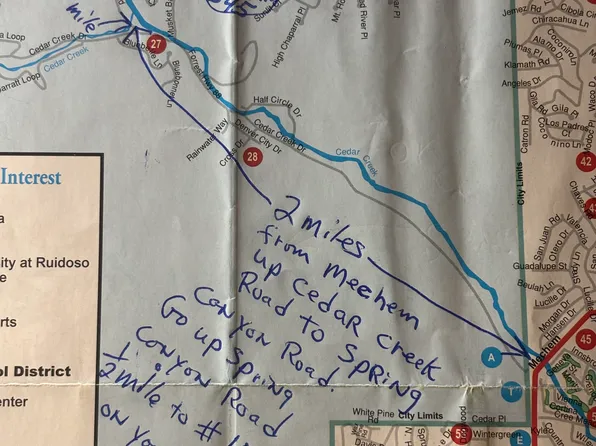 mile
2 miles
from Mechem
up Cedar Creek
Road to Spring
Conyon Road.
Go up Spring
Conyon Road
1/2 mile to #
on
Cedar Creek
Cedar Creek
Loop
27
Forrest Hwy
Bluebonnet Ln
Musket B
High Chaparral Pl
Mt. Ro
d River Pl
Half Circle Dr
Cedar Creek Dr
Denver City Dr
Rainwater Way
Cross Dr
28
Cedar Creek
Jemez Rd
Cibola Cir
Chiracahua Ln
Coconino Ln
Plumas Pl
Alamo Dr
Klamath Rd
Angeles Dr
Gila Rd
Gila Pl
Los Padres Ct
Waco D
Modoc Pl
nino Ln
Catron Rd
City Limits
42
Chaves
Valencia
San Juan Rd
Otero Dr
Sandy Ln
Guadalupe St
Beulah Ln
Lucille Dr
Morgan Dr
Hansen Dr
45
Mechem
Innsbr
A
T
E
White Pine
City Limits
Cedar Pl
53
Wintergreen
Interest
a
ity at Ruidoso
e
rts
ol District
enter